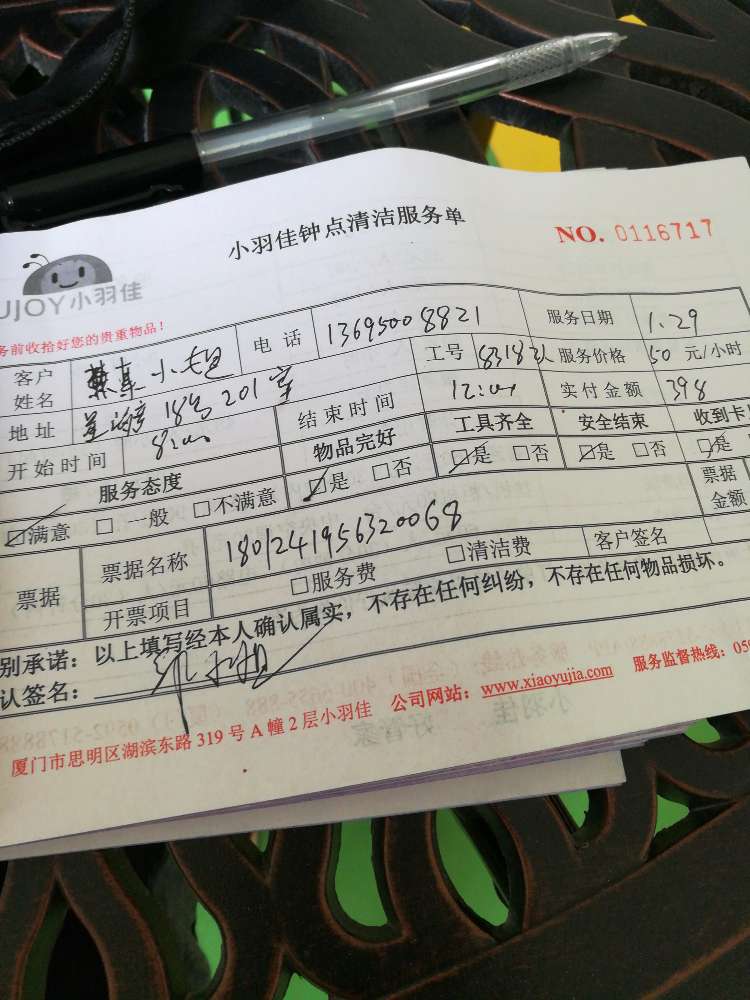 小羽佳钟点清洁服务单
NO. 0116717
UJOY小羽佳
务前收拾好您的贵重物品！
客户姓名 小姐 电话 13695008821 服务日期 1.29
地址 18号201室 工号 8318 2人 服务价格 50 元/小时
开始时间 8:00 结束时间 12:00 实付金额 398
服务态度 物品完好 工具齐全 安全结束 收到卡
☑满意 □一般 □不满意 ☑是 □否 ☑是 □否 ☑是 □否 ☑是
票据 票据名称 1801241956320068 客户签名 票据金额
开票项目 □服务费 □清洁费
别承诺：以上填写经本人确认属实，不存在任何纠纷，不存在任何物品损坏。
认签名：
厦门市思明区湖滨东路 319 号 A 幢 2 层小羽佳 公司网站：www.xiaoyujia.com 服务监督热线：059